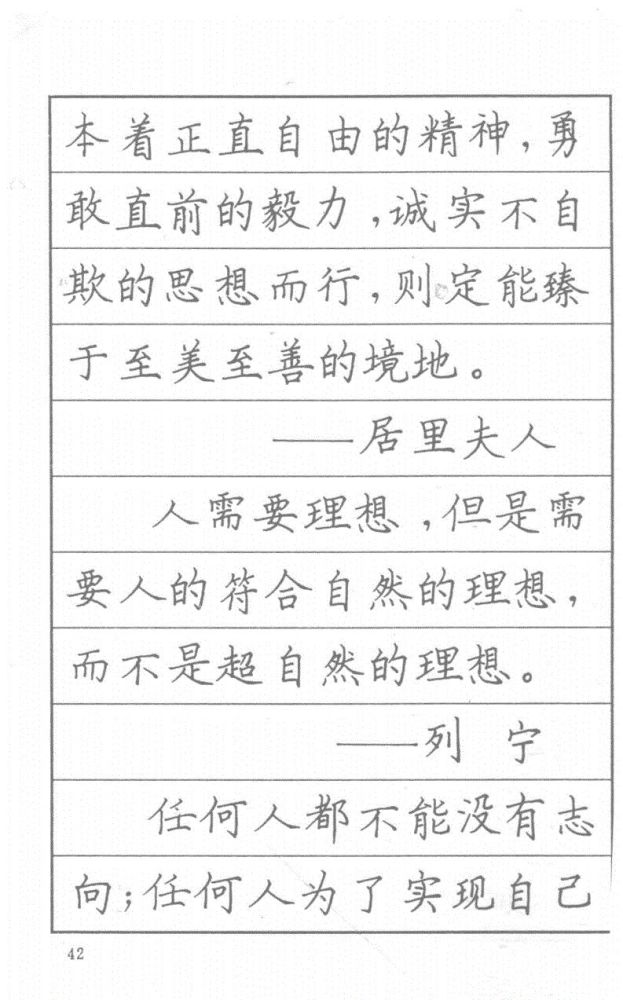 本着正直自由的精神,勇
敢直前的毅力,诚实不自
欺的思想而行,则定能臻
于至美至善的境地。
——居里夫人
人需要理想,但是需
要人的符合自然的理想,
而不是超自然的理想。
——列 宁
任何人都不能没有志
向;任何人为了实现自己
42